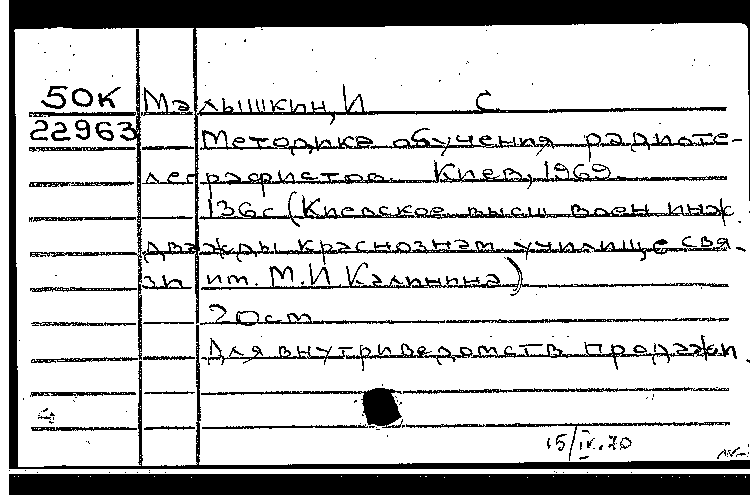 50К Малышкин, И С.
22963 Методика обучения радиоте-
леграфистов. Киев, 1969.
136с (Киевское высш воен инж.
дважды краснознам училище свя-
зи им. М.И. Калинина)
20см
Для внутриведомств продажи.
4
15/IV.70